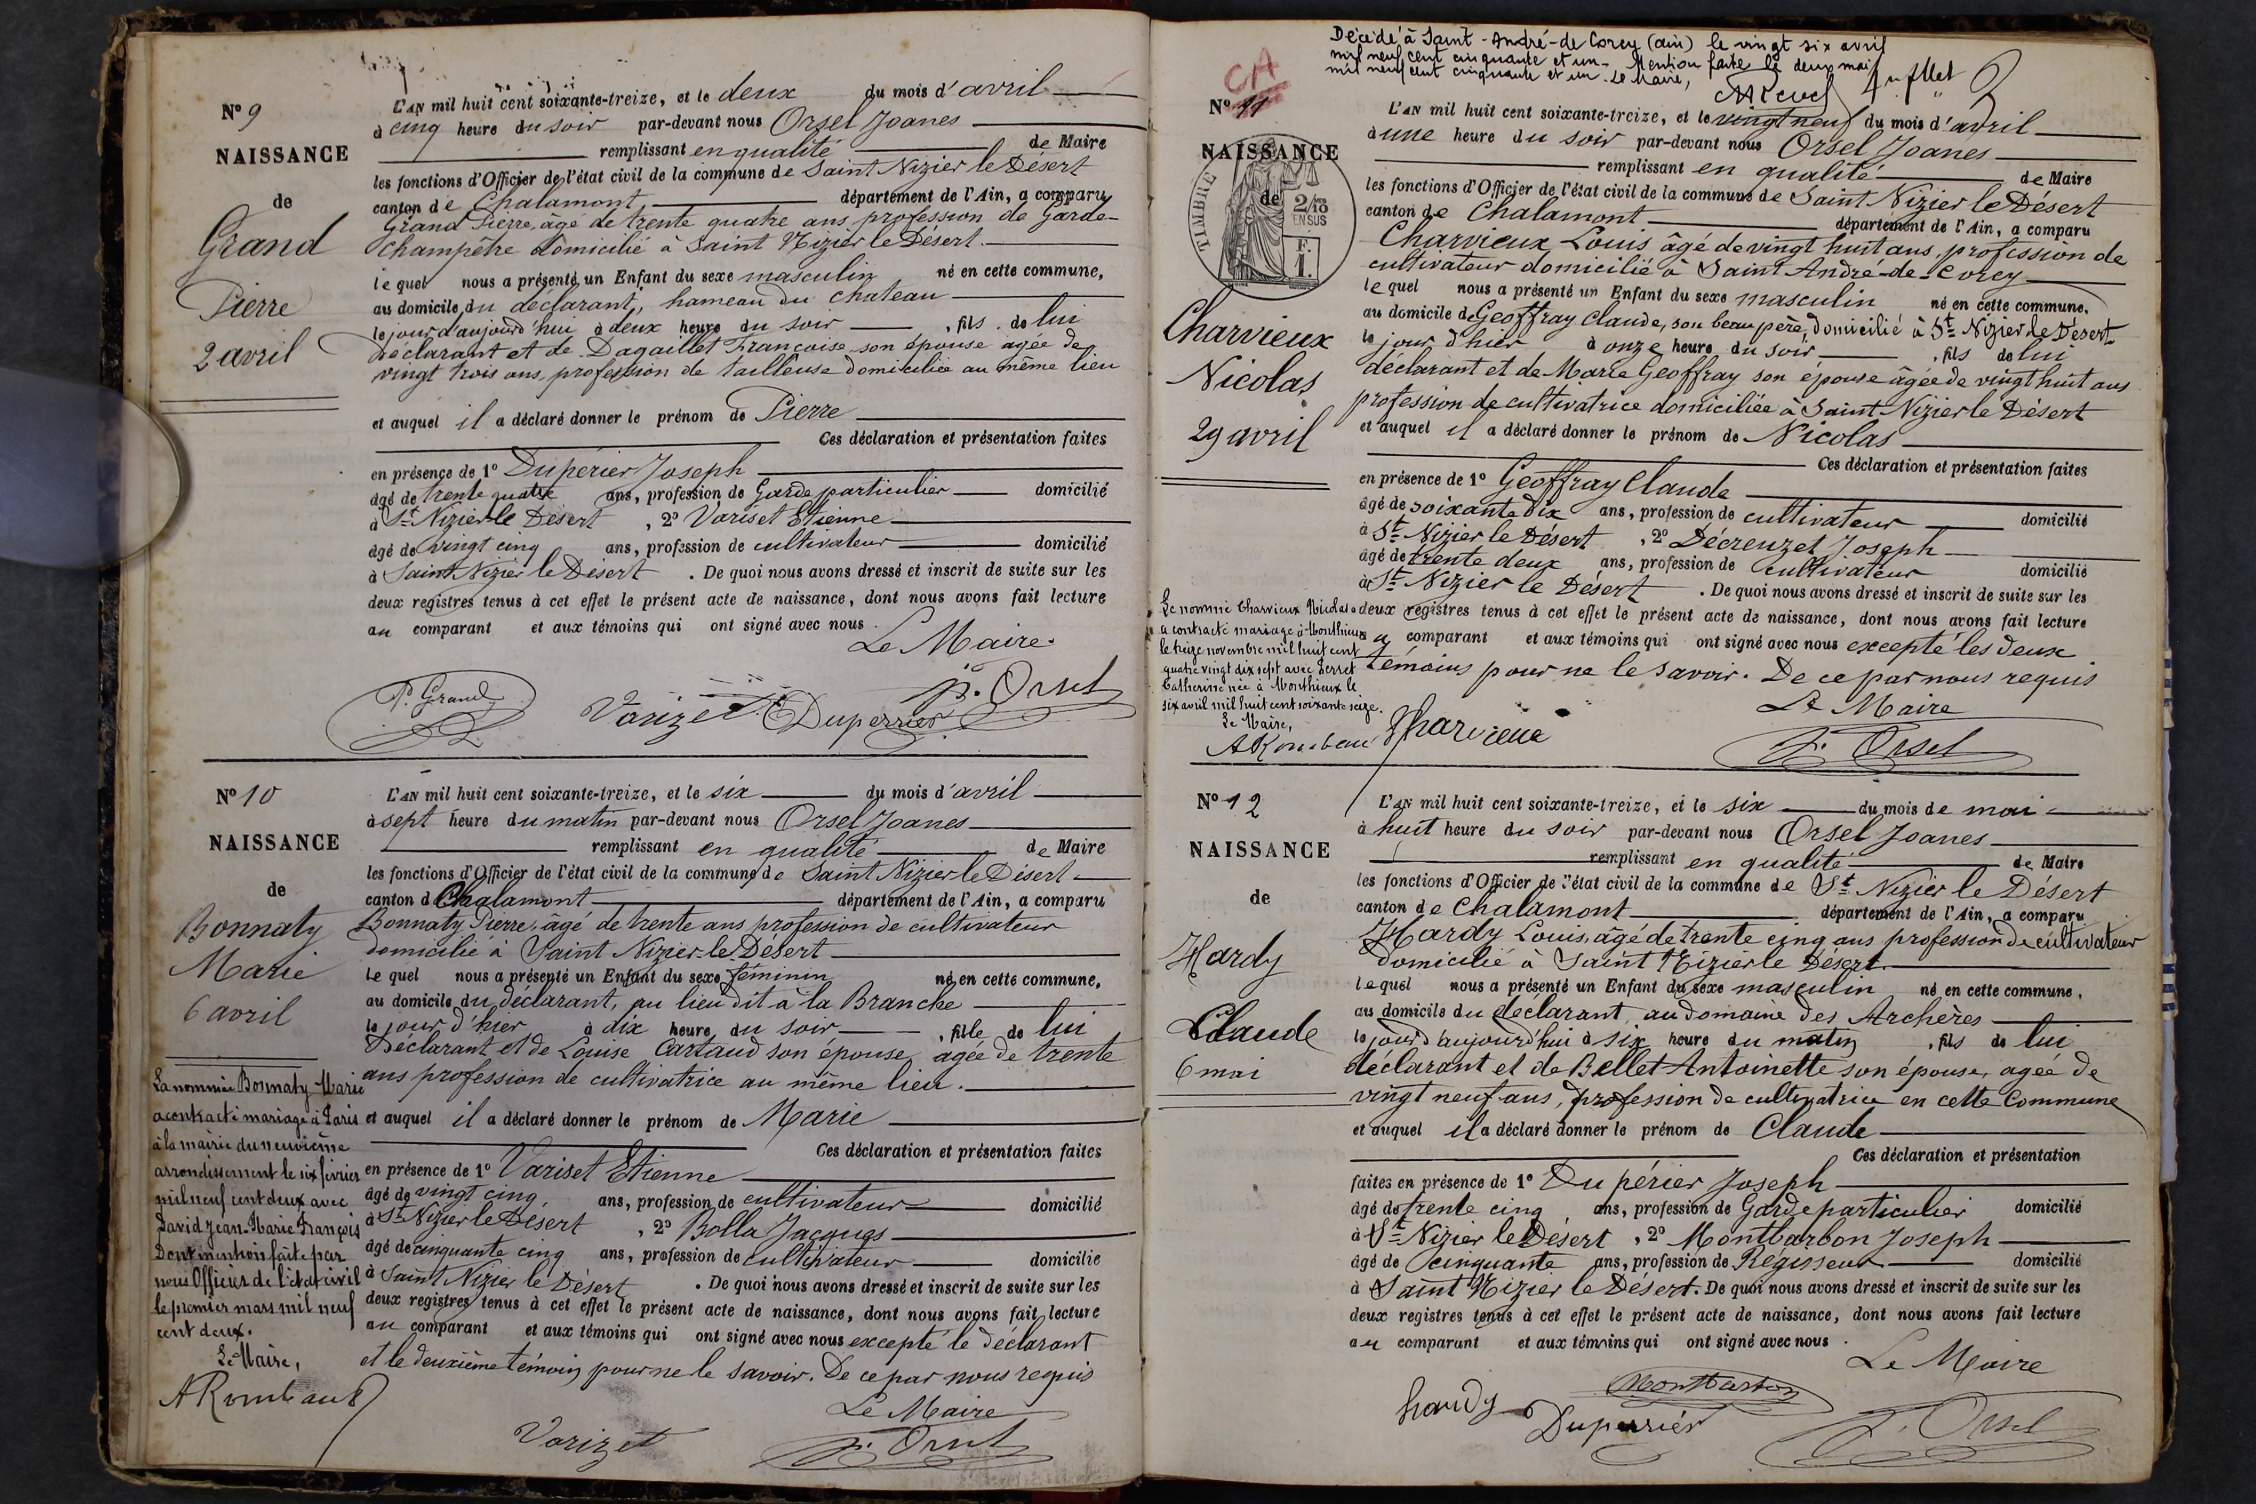 N° 9
NAISSANCE
de
Grand
Pierre
2 avril
L'AN mil huit cent soixante-treize, et le deux du mois d'avril
à cinq heure du soir par-devant nous Orsel Joanes
remplissant en qualité de Maire
les fonctions d'Officier de l'état civil de la commune de Saint Nizier le Désert
canton de Chalamont, département de l'Ain, a comparu
Grand Pierre, âgé de trente quatre ans, profession de Garde-
champêtre domicilié à Saint Nizier le Désert.
lequel nous a présenté un Enfant du sexe masculin né en cette commune,
au domicile du déclarant, hameau du chateau
le jour d'aujourd'hui à deux heure du soir, fils de lui
déclarant et de Dagaillet Françoise son épouse agée de
vingt trois ans, profession de tailleuse domiciliée au même lieu
et auquel il a déclaré donner le prénom de Pierre
Ces déclaration et présentation faites
en présence de 1° Dupérier Joseph
âgé de trente quatre ans, profession de Garde particulier domicilié
à St Nizier le Désert, 2° Variset Etienne
âgé de vingt cinq ans, profession de cultivateur domicilié
à Saint Nizier le Désert. De quoi nous avons dressé et inscrit de suite sur les
deux registres tenus à cet effet le présent acte de naissance, dont nous avons fait lecture
au comparant et aux témoins qui ont signé avec nous.
Le Maire.
P. Grand Varizet Duperrier J. Orsel
N° 10
NAISSANCE
de
Bonnaty
Marie
6 avril
L'AN mil huit cent soixante-treize, et le six du mois d'avril
à sept heure du matin par-devant nous Orsel Joanes
remplissant en qualité de Maire
les fonctions d'Officier de l'état civil de la commune de Saint Nizier le Désert
canton de Chalamont département de l'Ain, a comparu
Bonnaty Pierre, âgé de trente ans profession de cultivateur
domicilié à Saint Nizier le Désert
lequel nous a présenté un Enfant du sexe féminin né en cette commune,
au domicile du déclarant, au lieu dit à la Branche
le jour d'hier à dix heure du soir, fille de lui
Déclarant et de Louise Cartaud son épouse, agée de trente
ans profession de cultivatrice au même lieu.
et auquel il a déclaré donner le prénom de Marie
Ces déclaration et présentation faites
en présence de 1° Variset Etienne
âgé de vingt cinq ans, profession de cultivateur domicilié
à St Nizier le Désert, 2° Bolla Jacques
âgé de cinquante cinq ans, profession de cultivateur domicilié
à Saint Nizier le Désert. De quoi nous avons dressé et inscrit de suite sur les
deux registres tenus à cet effet le présent acte de naissance, dont nous avons fait lecture
au comparant et aux témoins qui ont signé avec nous excepté le déclarant
et le deuxième témoin pour ne le savoir. De ce par nous requis
Le Maire
Varizet J. Orsel
La nommée Bonnaty Marie
a contracté mariage à Paris
à la mairie du neuvième
arrondissement le six février
mil neuf cent deux avec
David Jean-Marie François
Dont mention faite par
nous Officier de l'état civil
le premier mars mil neuf
cent deux.
Le Maire,
A Rombaud
Décédé à Saint-André-de Corcy (ain) le vingt six avril
mil neuf cent cinquante et un - Mention faite le deux mai
mil neuf cent cinquante et un. Le Maire,
CA
N° 11
NAISSANCE
de
TIMBRE
2/10
EN SUS
F.
1.
Charvieux
Nicolas
29 avril
L'AN mil huit cent soixante-treize, et le vingt neuf du mois d'avril
à une heure du soir par-devant nous Orsel Joanes
remplissant en qualité de Maire
les fonctions d'Officier de l'état civil de la commune de Saint Nizier le Désert
canton de Chalamont département de l'Ain, a comparu
Charvieux Louis âgé de vingt huit ans, profession de
cultivateur domicilié à Saint André-de-Corcy
lequel nous a présenté un Enfant du sexe masculin né en cette commune.
au domicile de Geoffray Claude, son beau père, domicilié à St Nizier le Désert
le jour d'hier à onze heure du soir, fils de lui
déclarant et de Marie Geoffray son épouse âgée de vingt huit ans
profession de cultivatrice domiciliée à Saint Nizier le Désert
et auquel il a déclaré donner le prénom de Nicolas
Ces déclaration et présentation faites
en présence de 1° Geoffray Claude
âgé de soixante dix ans, profession de cultivateur domicilié
à St Nizier le Désert, 2° Décreuzet Joseph
âgé de trente deux ans, profession de cultivateur domicilié
à St Nizier le Désert. De quoi nous avons dressé et inscrit de suite sur les
deux registres tenus à cet effet le présent acte de naissance, dont nous avons fait lecture
au comparant et aux témoins qui ont signé avec nous excepté les deux
témoins pour ne le savoir. De ce par nous requis
Le Maire
Charvieux J. Orsel
Le nommé Charvieux Nicolas
a contracté mariage à Monthieux
le treize novembre mil huit cent
quatre vingt dix sept avec Perret
Catherine née à Monthieux le
six avril mil huit cent soixante seize.
Le Maire,
A Rombaud
N° 12
NAISSANCE
de
Hardy
Claude
6 mai
L'AN mil huit cent soixante-treize, et le six du mois de mai
à huit heure du soir par-devant nous Orsel Joanes
remplissant en qualité de Maire
les fonctions d'Officier de l'état civil de la commune de St Nizier le Désert
canton de Chalamont département de l'Ain, a comparu
Hardy Louis, âgé de trente cinq ans profession de cultivateur
domicilié à Saint Nizier le Désert
lequel nous a présenté un Enfant du sexe masculin né en cette commune,
au domicile du déclarant, au domaine des Archères
le jour d'aujourd'hui à six heure du matin, fils de lui
déclarant et de Bellet Antoinette son épouse, agée de
vingt neuf ans, profession de cultivatrice en cette Commune
et auquel il a déclaré donner le prénom de Claude
Ces déclaration et présentation
faites en présence de 1° Dupérier Joseph
âgé de trente cinq ans, profession de Garde particulier domicilié
à St Nizier le Désert, 2° Montbarbon Joseph
âgé de cinquante ans, profession de Régisseur domicilié
à Saint Nizier le Désert. De quoi nous avons dressé et inscrit de suite sur les
deux registres tenus à cet effet le présent acte de naissance, dont nous avons fait lecture
au comparant et aux témoins qui ont signé avec nous.
Le Maire
hardy Montbarbon
Duperrier J. Orsel